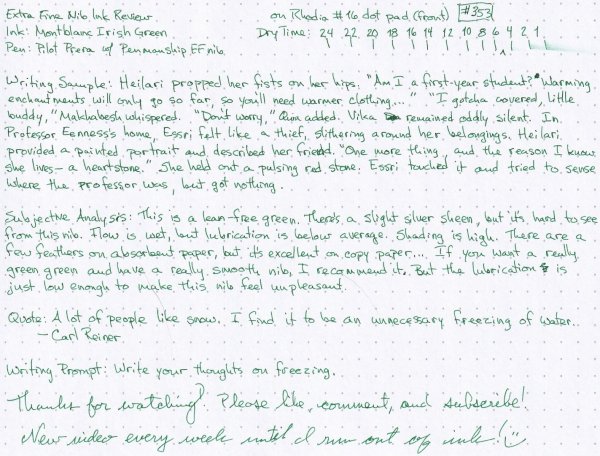 Extra Fine Nib Ink Review on Rhodia #16 dot pad (front) #353
Ink: Montblanc Irish Green Dry Time: 24 22 20 18 16 14 12 10 8 6 4 2 1
Pen: Pilot Prera w/ Penmanship EF nib
Writing Sample: Heilari propped her fists on her hips. "Am I a first-year student? Warming
enchantments will only go so far, so you'll need warmer clothing..." "I gotcha covered, little
buddy," Makhabesh whispered. "Don't worry," Qum added. Vika remained oddly silent. In
Professor Eenness's home, Essri felt like a thief, slithering around her belongings. Heilari
provided a painted portrait and described her friend. "One more thing, and the reason I know
she lives – a heartstone." She held out a pulsing red stone. Essri touched it and tried to sense
where the professor was, but got nothing.
Subjective Analysis: This is a lean-free green. There's a slight silver sheen, but it's hard to see
from this nib. Flow is wet, but lubrication is below average. Shading is high. There are a
few feathers on absorbent paper, but it's excellent on copy paper.... If you want a really
green green and have a really smooth nib, I recommend it. But the lubrication is
just low enough to make this nib feel unpleasant.
Quote: A lot of people like snow. I find it to be an unnecessary freezing of water.
– Carl Reiner
Writing Prompt: Write your thoughts on freezing.
Thanks for watching! Please like, comment, and subscribe!
New video every week until I run out of ink!